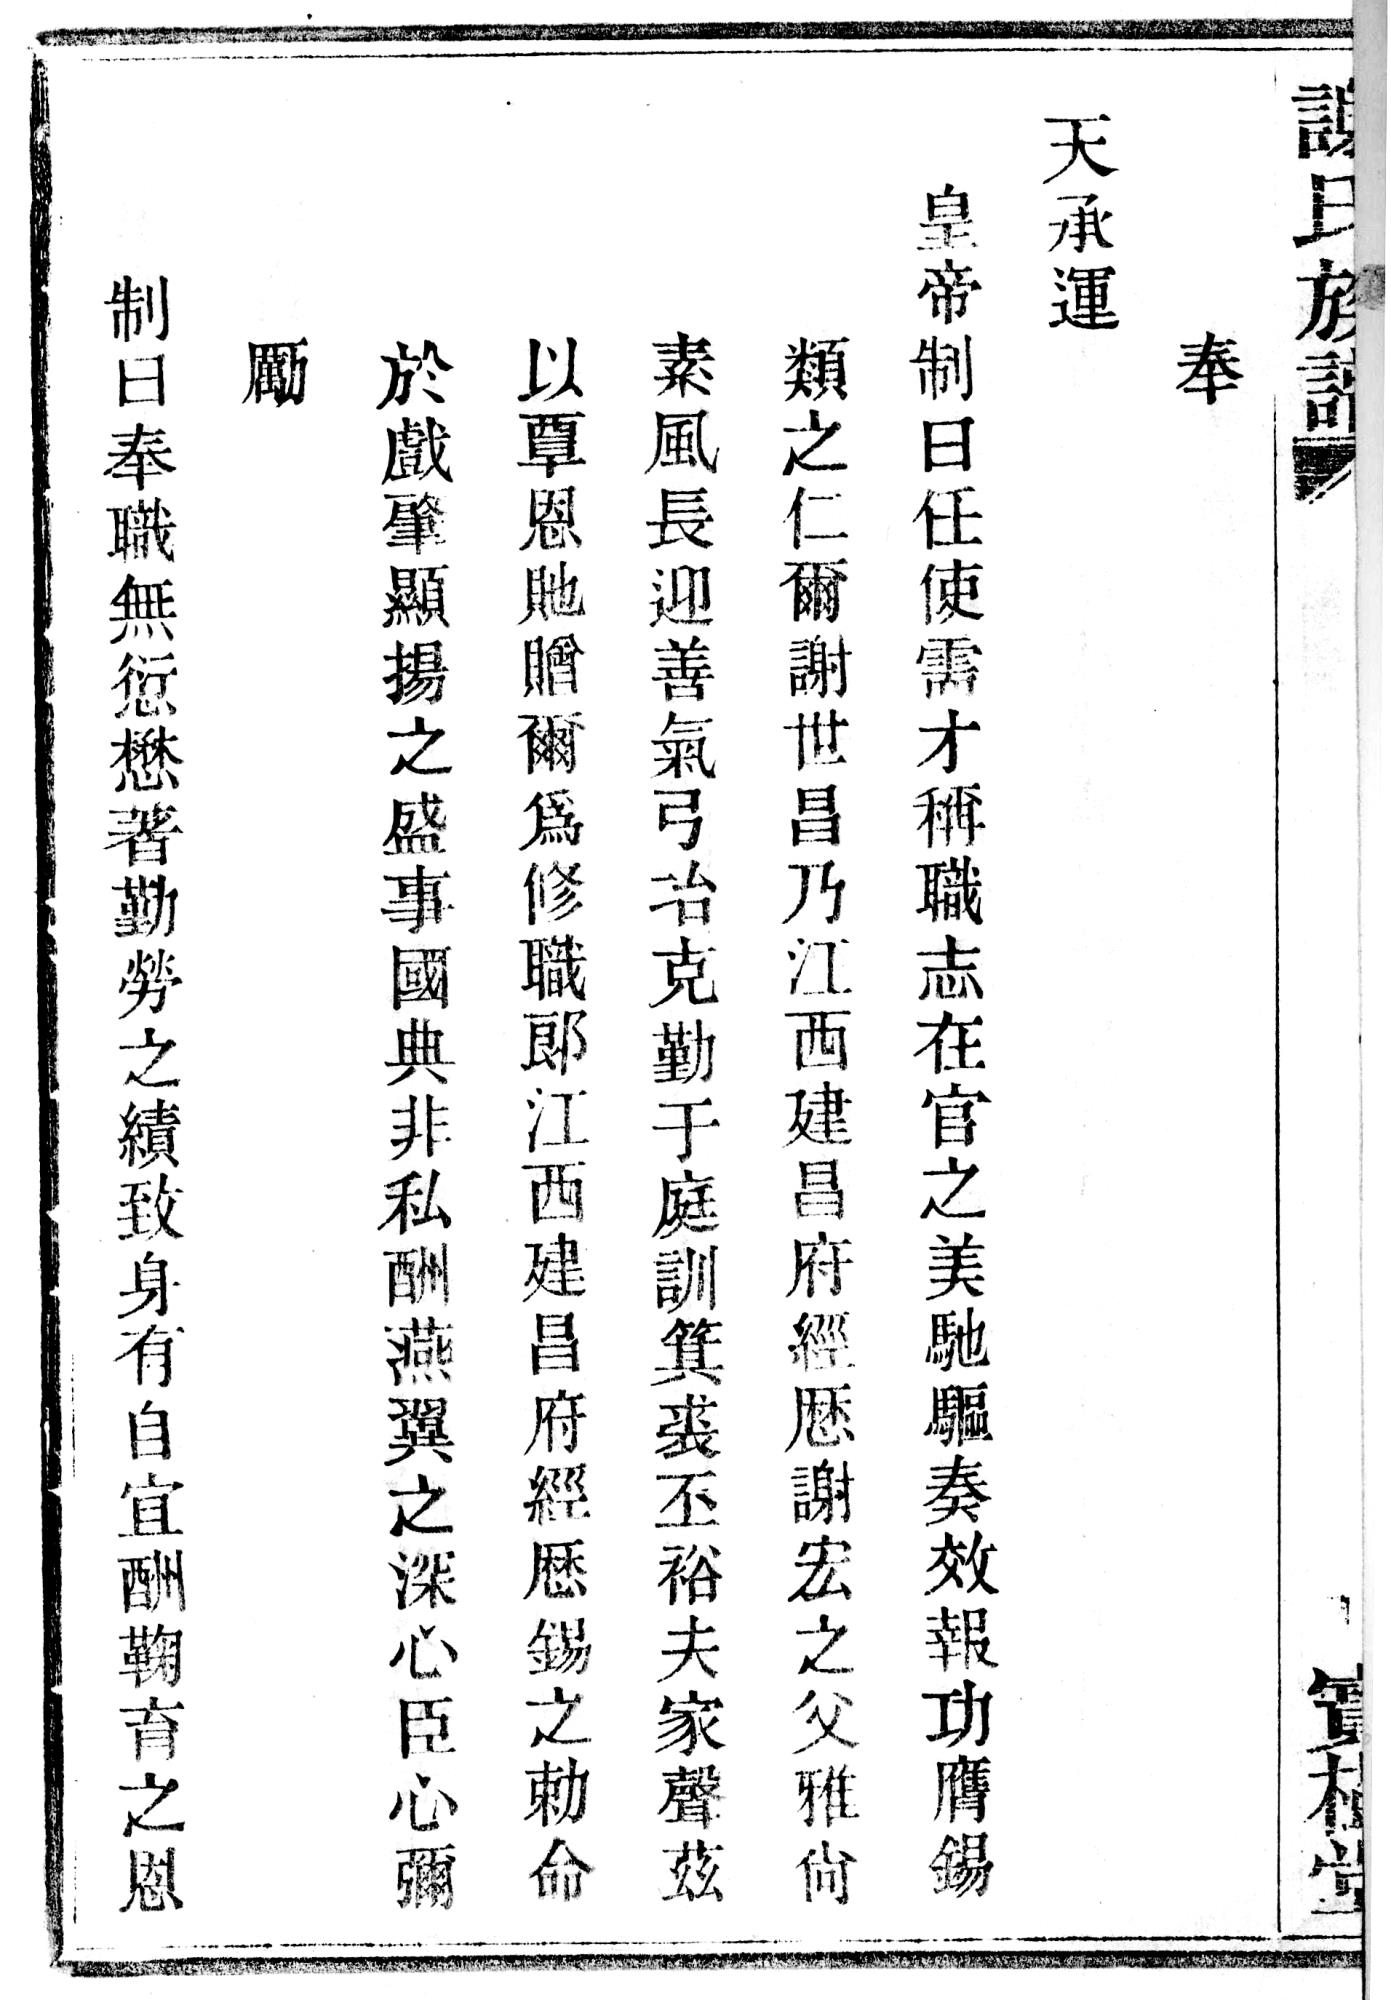 氏族譜
寶樹堂
奉
天承運
皇帝制曰任使需才稱職志在官之美馳驅奏效報功膺錫
類之仁爾謝世昌乃江西建昌府經歷謝宏之父雅尙
素風長迎善氣弓冶克勤于庭訓箕裘丕裕夫家聲茲
以覃恩貤贈爾爲修職郎江西建昌府經歷錫之勅命
於戲肇顯揚之盛事國典非私酬燕翼之深心臣心彌
勵
制曰奉職無愆懋著勤勞之績致身有自宜酬鞠育之恩